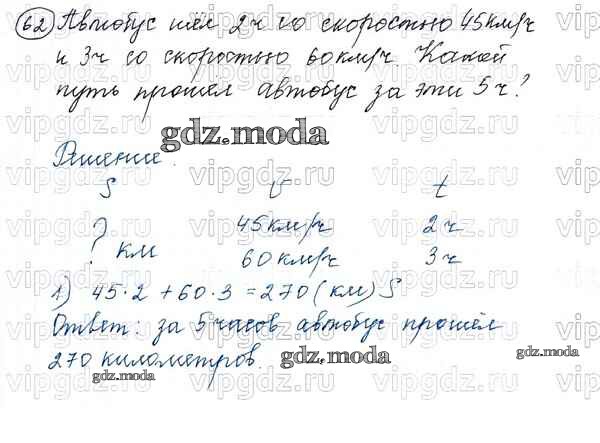 62 Автобус шёл 2ч со скоростью 45км/ч
и 3ч со скоростью 60км/ч. Какой
путь прошёл автобус за эти 5ч?
gdz.moda
Решение.
S V t
? км 45км/ч 2ч
60км/ч 3ч
1) 45·2+60·3=270(км) S
Ответ: за 5 часов автобус прошёл
270 километров.
gdz.moda
gdz.moda
gdz.moda
vipgdz.ru